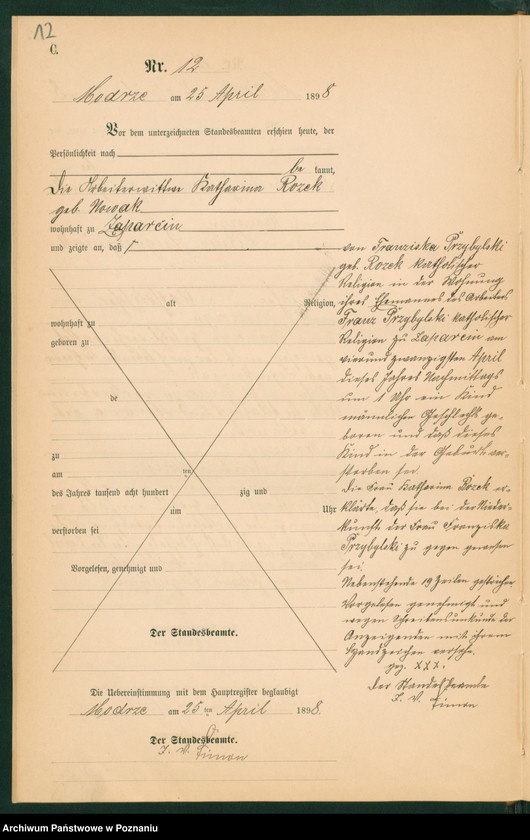 12
C.
Nr. 12
Modrze am 25 April 1898
Vor dem unterzeichneten Standesbeamten erschien heute, der
Persönlichkeit nach
be kannt,
die Arbeiterwittwe Katharina Rozek
geb. Nowak
wohnhaft zu Zaparcin
und zeigte an, daß
alt Religion,
wohnhaft zu
geboren zu
de
zu
am ten
des Jahres tausend acht hundert zig und
um Uhr
verstorben sei
Vorgelesen, genehmigt und
Der Standesbeamte.
von Franziska Przybylski
geb. Rozek katholischer
Religion in der Wohnung
ihres Ehemannes des Arbeiters
Franz Przybylski katholischer
Religion zu Zaparcin am
vierundzwanzigsten April
dieses Jahres Nachmittags
um 1 Uhr ein Kind
männlichen Geschlechts ge-
boren und daß dieses
Kind in der Geburt ver-
storben sei.
Die Frau Katharina Rozek er-
klärte, daß sie bei der Nieder-
kunft der Frau Franziska
Przybylski zu gegen gewesen
sei.
Nebenstehende 19 Zeilen gestrichen
Vorgelesen genehmigt und
wegen Schreibensunkunde der
Anzeigenden mit ihrem
Handzeichen versehen.
gez. XXX.
Der Standesbeamte
I. V.
Die Uebereinstimmung mit dem Hauptregister beglaubigt
Modrze am 25 ten April 1898.
Der Standesbeamte.
I. V.
Archiwum Państwowe w Poznaniu